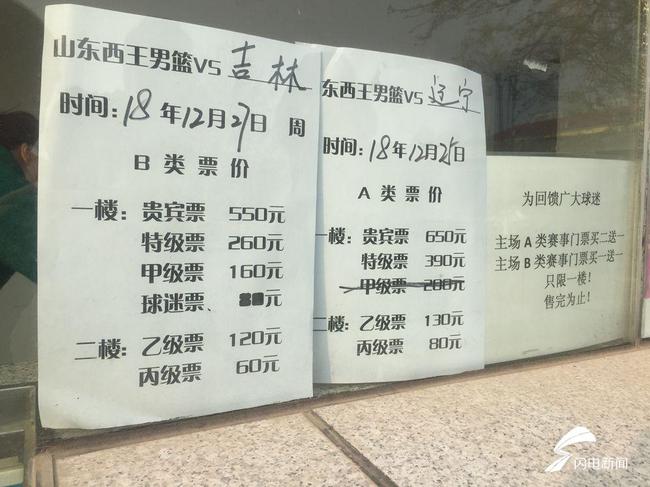 山东西王男篮VS 吉林
时间:18年12月27日 周
B 类 票 价
一楼:贵宾票 550元
特级票 260元
甲级票 160元
球迷票、 元
二楼:乙级票 120元
丙级票 60元
东西王男篮VS 辽宁
时间:18年12月25日
A 类 票 价
一楼:贵宾票 650元
特级票 390元
甲级票 280元
二楼:乙级票 130元
丙级票 80元
为回馈广大球迷
主场 A 类赛事门票买二送一
主场 B 类赛事门票买一送一
只限一楼!
售完为止!
闪电新闻